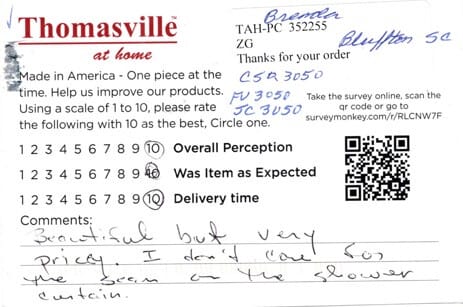 Thomasville™
at home
Brenda
TAH-PC 352255
ZG
Bluffton SC
Thanks for your order
CSR 3050
FU 3050
JC 3050
Made in America - One piece at the
time. Help us improve our products.
Using a scale of 1 to 10, please rate
the following with 10 as the best, Circle one.
Take the survey online, scan the
qr code or go to
surveymonkey.com/r/RLCNW7F
1 2 3 4 5 6 7 8 9 10 Overall Perception
1 2 3 4 5 6 7 8 9 10 Was Item as Expected
1 2 3 4 5 6 7 8 9 10 Delivery time
Comments:
Beautiful but very
pricey. I don't care for
the seam on the shower
curtain.